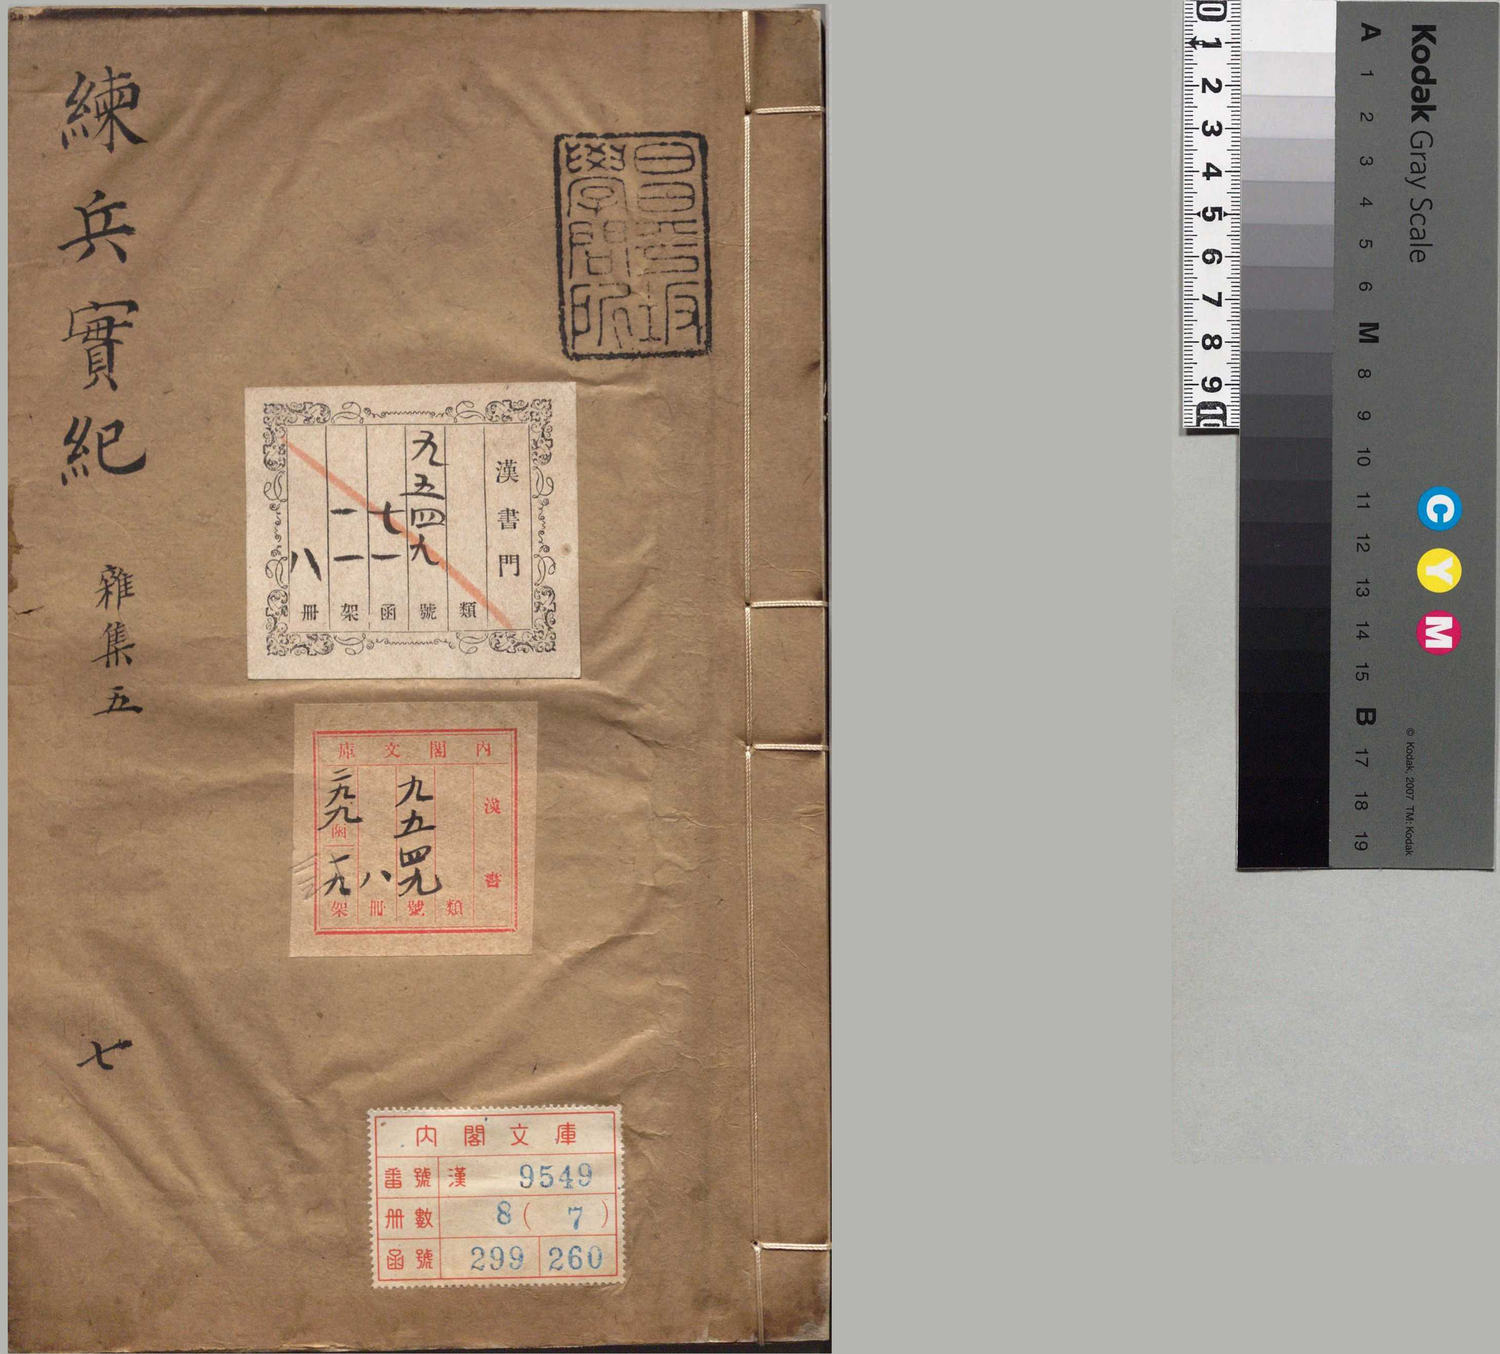 練兵實紀
雜集五
七
昌平坂
學問所
漢書門
類
九五四九號
七一函
一一架
八冊
內閣文庫
漢書
類
九五四九號
八冊
二九九函
一九架
內閣文庫
番號 漢 9549
冊數 8( 7 )
函號 299 260
0 1 2 3 4 5 6 7 8 9 10
Kodak Gray Scale
A 1 2 3 4 5 6 M 8 9 10 11 12 13 14 15 B 17 18 19
C Y M
© Kodak, 2007 TM: Kodak